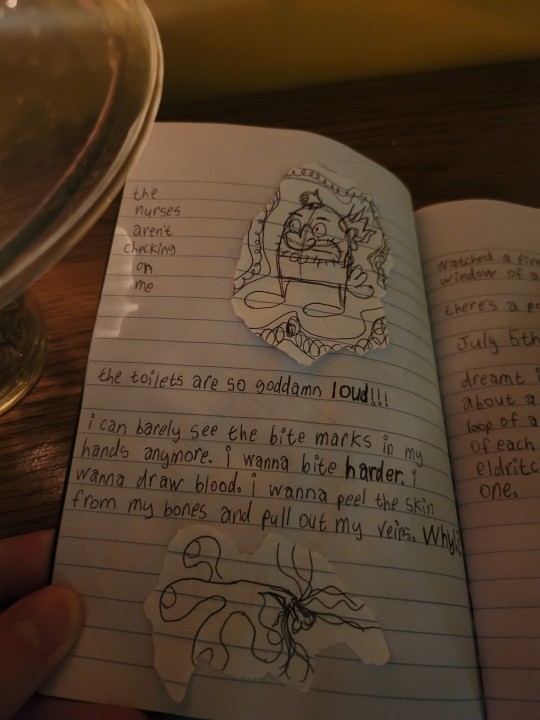 the
nurses
aren't
checking
on
me
the toilets are so goddamn loud!!!
i can barely see the bite marks in my
hands anymore. i wanna bite harder. i
wanna draw blood. i wanna peel the skin
from my bones and pull out my veins. Why
watched a
window of a
there's a
July 5th
dreamt
about a
loop of a
of each
one.